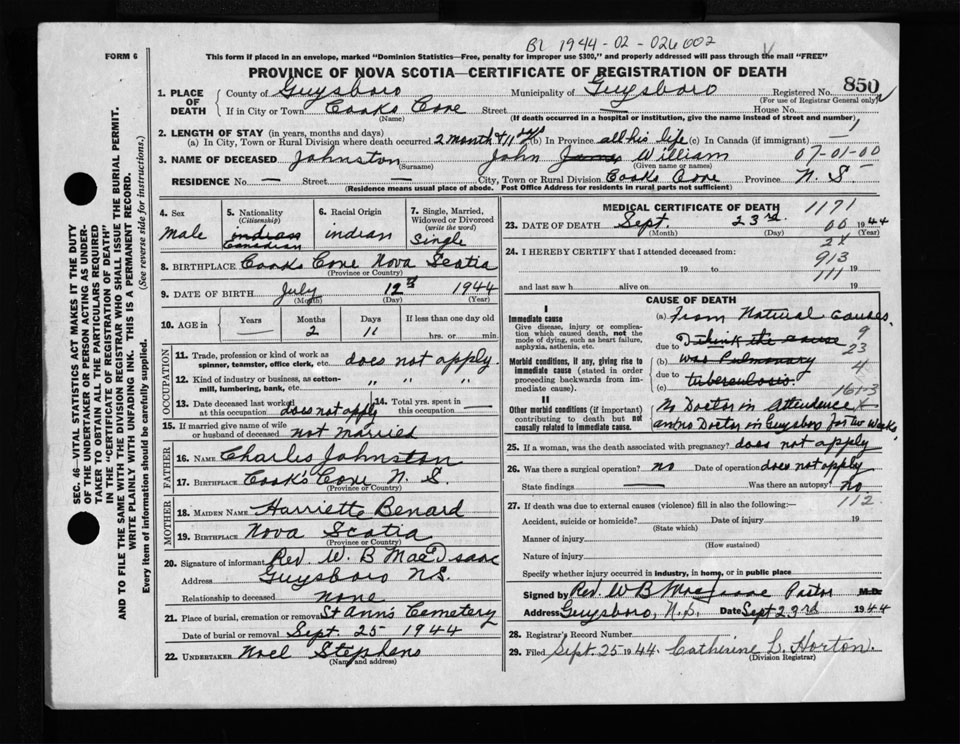 BL 1944-02-026002
FORM 6
This form if placed in an envelope, marked "Dominion Statistics—Free, penalty for improper use $300," and properly addressed will pass through mail "FREE"
PROVINCE OF NOVA SCOTIA—CERTIFICATE OF REGISTRATION OF DEATH
1. PLACE OF DEATH County of Guysboro Municipality of Guysboro Registered No. 850
(For use of Registrar General only)
If in City or Town Cooks Cove Street House No.
(Name) (If death occurred in a hospital or institution, give the name instead of street and number)
2. LENGTH OF STAY (in years, months and days) 1
(a) In City, Town or Rural Division where death occurred 2 month & 11 dys (b) In Province all his life (c) In Canada (if immigrant)
3. NAME OF DECEASED Johnston John James William 07-01-00
(Surname) (Given name or names)
RESIDENCE No. — Street — City, Town or Rural Division Cooks Cove Province N. S.
(Residence means usual place of abode. Post Office Address for residents in rural parts not sufficient)
SEC. 46—VITAL STATISTICS ACT MAKES IT THE DUTY
OF THE UNDERTAKER OR PERSON ACTING AS UNDER-
TAKER TO OBTAIN ALL THE PARTICULARS REQUIRED
IN THE "CERTIFICATE OF REGISTRATION OF DEATH"
AND TO FILE THE SAME WITH THE DIVISION REGISTRAR WHO SHALL ISSUE THE BURIAL PERMIT.
WRITE PLAINLY WITH UNFADING INK. THIS IS A PERMANENT RECORD.
Every item of information should be carefully supplied. (See reverse side for instructions.)
4. Sex
male
5. Nationality
(Citizenship)
indian
Canadian
6. Racial Origin
indian
7. Single, Married,
Widowed or Divorced
(write the word)
Single
8. BIRTHPLACE Cooks Cove Nova Scotia
(Province or Country)
9. DATE OF BIRTH July 12th 1944
(Month) (Day) (Year)
10. AGE in Years Months Days If less than one day old
— 2 11 hrs. or min.
OCCUPATION
11. Trade, profession or kind of work as
spinner, teamster, office clerk, etc. does not apply.
12. Kind of industry or business, as cotton-
mill, lumbering, bank, etc. " " "
13. Date deceased last worked
at this occupation does not apply
14. Total yrs. spent in
this occupation —
15. If married give name of wife
or husband of deceased not married
FATHER
16. NAME Charles Johnston
17. BIRTHPLACE Cooks Cove N. S.
(Province or Country)
MOTHER
18. MAIDEN NAME Harriette Benard
19. BIRTHPLACE Nova Scotia
(Province or Country)
20. Signature of informant Rev. W. B MacIsaac
Address Guysboro N.S.
Relationship to deceased none
21. Place of burial, cremation or removal St Ann's Cemetery
Date of burial or removal Sept. 25 1944
22. UNDERTAKER Noel Stephens
(Name and address)
MEDICAL CERTIFICATE OF DEATH 1171
23. DATE OF DEATH Sept. 23rd. 00 1944
(Month) (Day) (Year)
24. I HEREBY CERTIFY that I attended deceased from:
913
19 to 19
111
and last saw h alive on 19
CAUSE OF DEATH
I
Immediate cause
Give disease, injury or complica-
tion which caused death, not the
mode of dying, such as heart failure,
asphyxia, asthenia, etc.
Morbid conditions, if any, giving rise to
immediate cause (stated in order
proceeding backwards from im-
mediate cause).
II
Other morbid conditions (if important)
contributing to death but not
causally related to immediate cause.
(a) From Natural Causes.
9
due to I think the cause
23
(b) was Pulmonary
4
due to tuberculosis.
(c) 161-3
No Doctor in Attendence
and no Doctor in Guysboro for two weeks
25. If a woman, was the death associated with pregnancy? does not apply
26. Was there a surgical operation? no Date of operation does not apply
State findings — Was there an autopsy? no
27. If death was due to external causes (violence) fill in also the following:— 112
Accident, suicide or homicide? Date of injury 19
(State which)
Manner of injury
(How sustained)
Nature of injury
Specify whether injury occurred in industry, in home, or in public place
Signed by Rev. W B MacIsaac Pastor M.D.
Address Guysboro, N.S. Date Sept 23rd 1944
28. Registrar's Record Number
29. Filed Sept. 25 1944. Catherine L. Horton.
(Division Registrar)